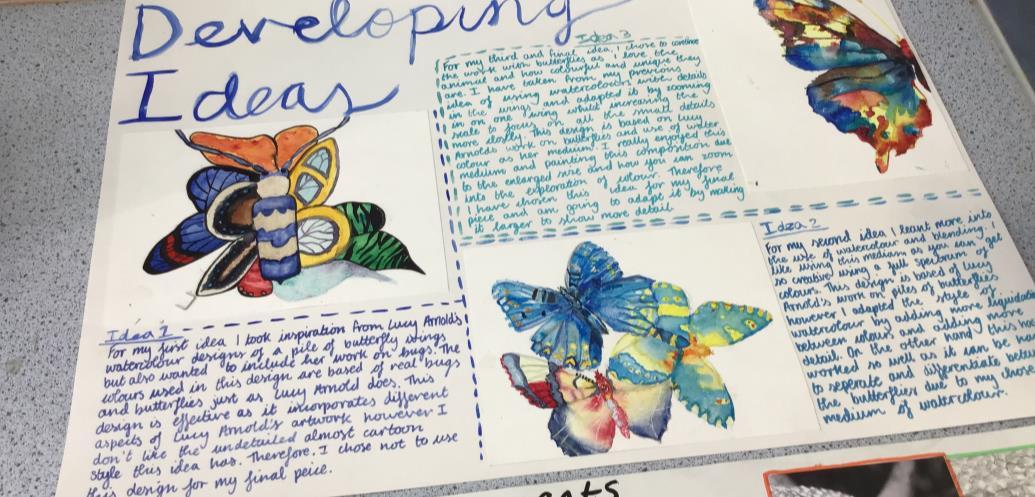 Developing
Ideas
Idea 3
For my third and final idea, I chose to continue
the work with butterflies as I love the
animal and how colourful and unique they
are. I have taken from my previous
idea of using watercolours within details
in the wings and adapted it by zooming
in on one wing whilst increasing the
scale to focus on all the small details
more closely. This design is based on Lucy
Arnolds work on butterflies and use of water
colour as her medium. I really enjoyed this
medium and painting this composition due
to the enlarged size and how you can zoom
into the exploration of colour. Therefore
I have chosen this idea for my final
piece and am going to adapt it by making
it larger to show more detail.
Idea 2
For my second idea I leant more into
the use of watercolour and blending. I
like using this medium as you can get
so creative using a full spectrum of
colours. This design is based of Lucy
Arnold's work on piles of butterflies
however I adapted the style of
watercolour by adding more liquidation
between colours and adding more
detail. On the other hand this
worked so well as it can be
to seperate and differentiate
the butterflies due to my
medium of watercolour.
Idea 1
For my first idea I took inspiration from Lucy Arnold's
watercolour designs of a pile of butterfly wings
but also wanted to include her work on bugs. The
colours used in this design are based of real bugs
and butterflies just as Lucy Arnold does. This
design is effective as it incorporates different
aspects of Lucy Arnold's artwork however I
don't like the undetailed almost cartoon
style this idea has. Therefore, I chose not to use
this design for my final peice.